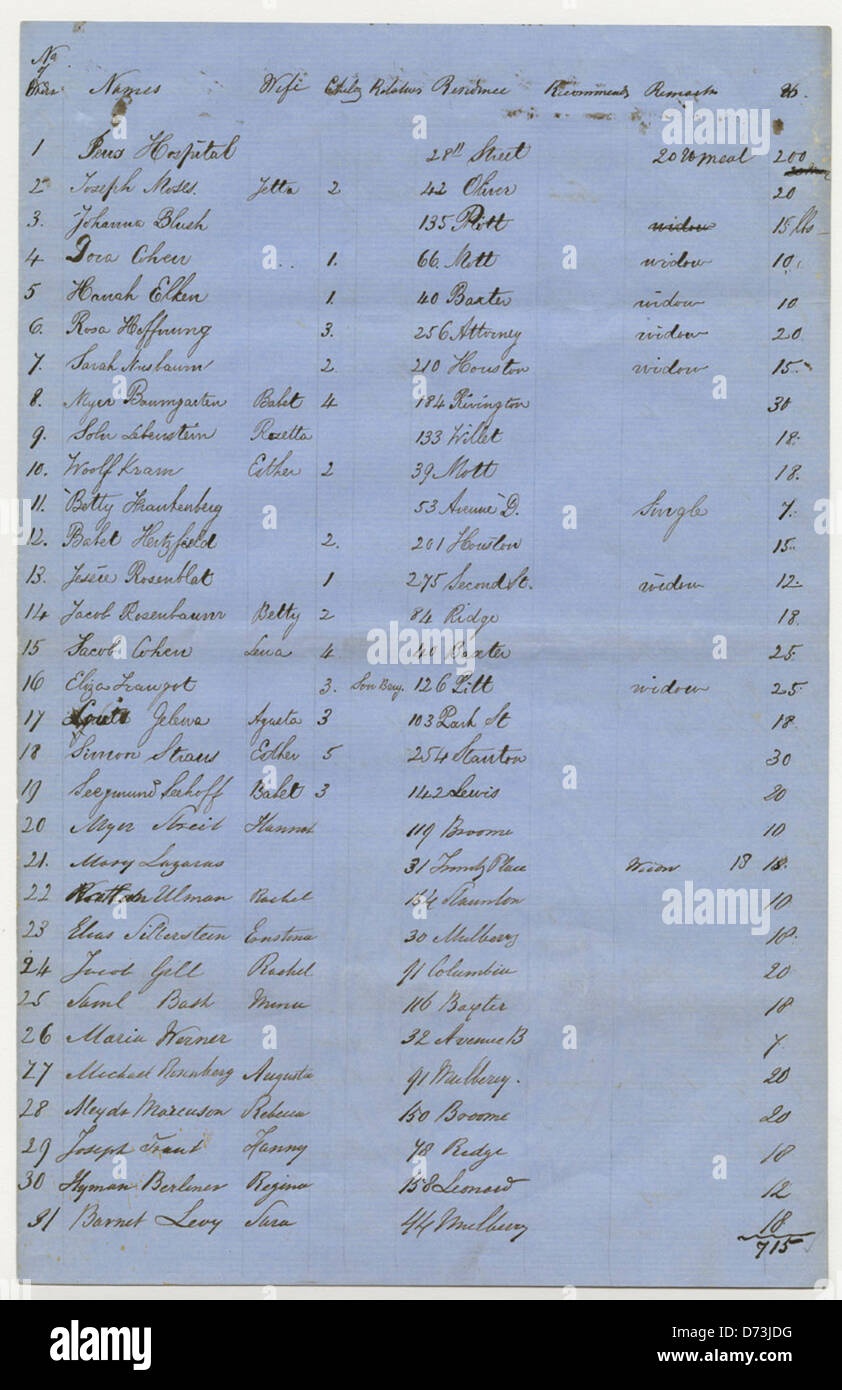 No of Order Names Wife Child Relatives Residence Recommends Remarks lb.
1 Jews Hospital 28th Street 20 lb meal 200
2 Joseph Moses Jetta 2 42 Oliver 20
3. Johanna Blush 135 Pitt widow 15 lbs
4 Dora Cohen 1. 66. Mott widow 10
5 Hanah Elken 1. 40 Baxter widow 10
6. Rosa Hoffnung 3. 256 Attorney widow 20
7. Sarah Nusbaum 2. 210 Houston widow 15
8. Myer Baumgarten Babet 4 184 Rivington 30
9. Sohn Lebenstein Rozetta 133 Willet 18.
10. Woolf Kram Esther 2 39 Mott 18.
11. Betty Frankenberg 53 Avenue D. Single 7.
12. Babet Hertzfield 2. 201 Houston 15.
13. Rosenblat 1 275 Second St. widow 12.
14 Jacob Rosenbaum Betty 2 84 Ridge 18
15 Jacob Cohen Lena 4 40 Baxter 25
16 Eliza 3. Son Benj. 126 Pitt widow 25
17 Agusta 3 103 Park St 18
18 Simon Straus Esther 5 254 Stanton 30
19 Seegmund Seehoff Babet 3 142 Lewis 20
20 Myer Streit Hannah 119 Broome 10
21. Mary Lazarus 31 Trinity Place 18 18
22 Ulman Rachel 154 Staunton 10
23 Elias Silberstein Ernstina 30 Mulbery 18.
24 Jacob Gell Rachel 91 Columbia 20
25 Saml Bash Minna 116 Baxter 18
26 Maria Werner 32 Avenue B 7
27 Michael Rosenberg Augusta 91 Mulberry. 20
28 Marcuson Rebecca 150 Broome 20
29 Joseph Traut Hanny 78 Ridge 18
30 Hyman Berliner Regina 158 Leonard 12
31 Barnet Levy Sara 44 Mulberry 18
715
alamy
Image ID: D73JDG
www.alamy.com